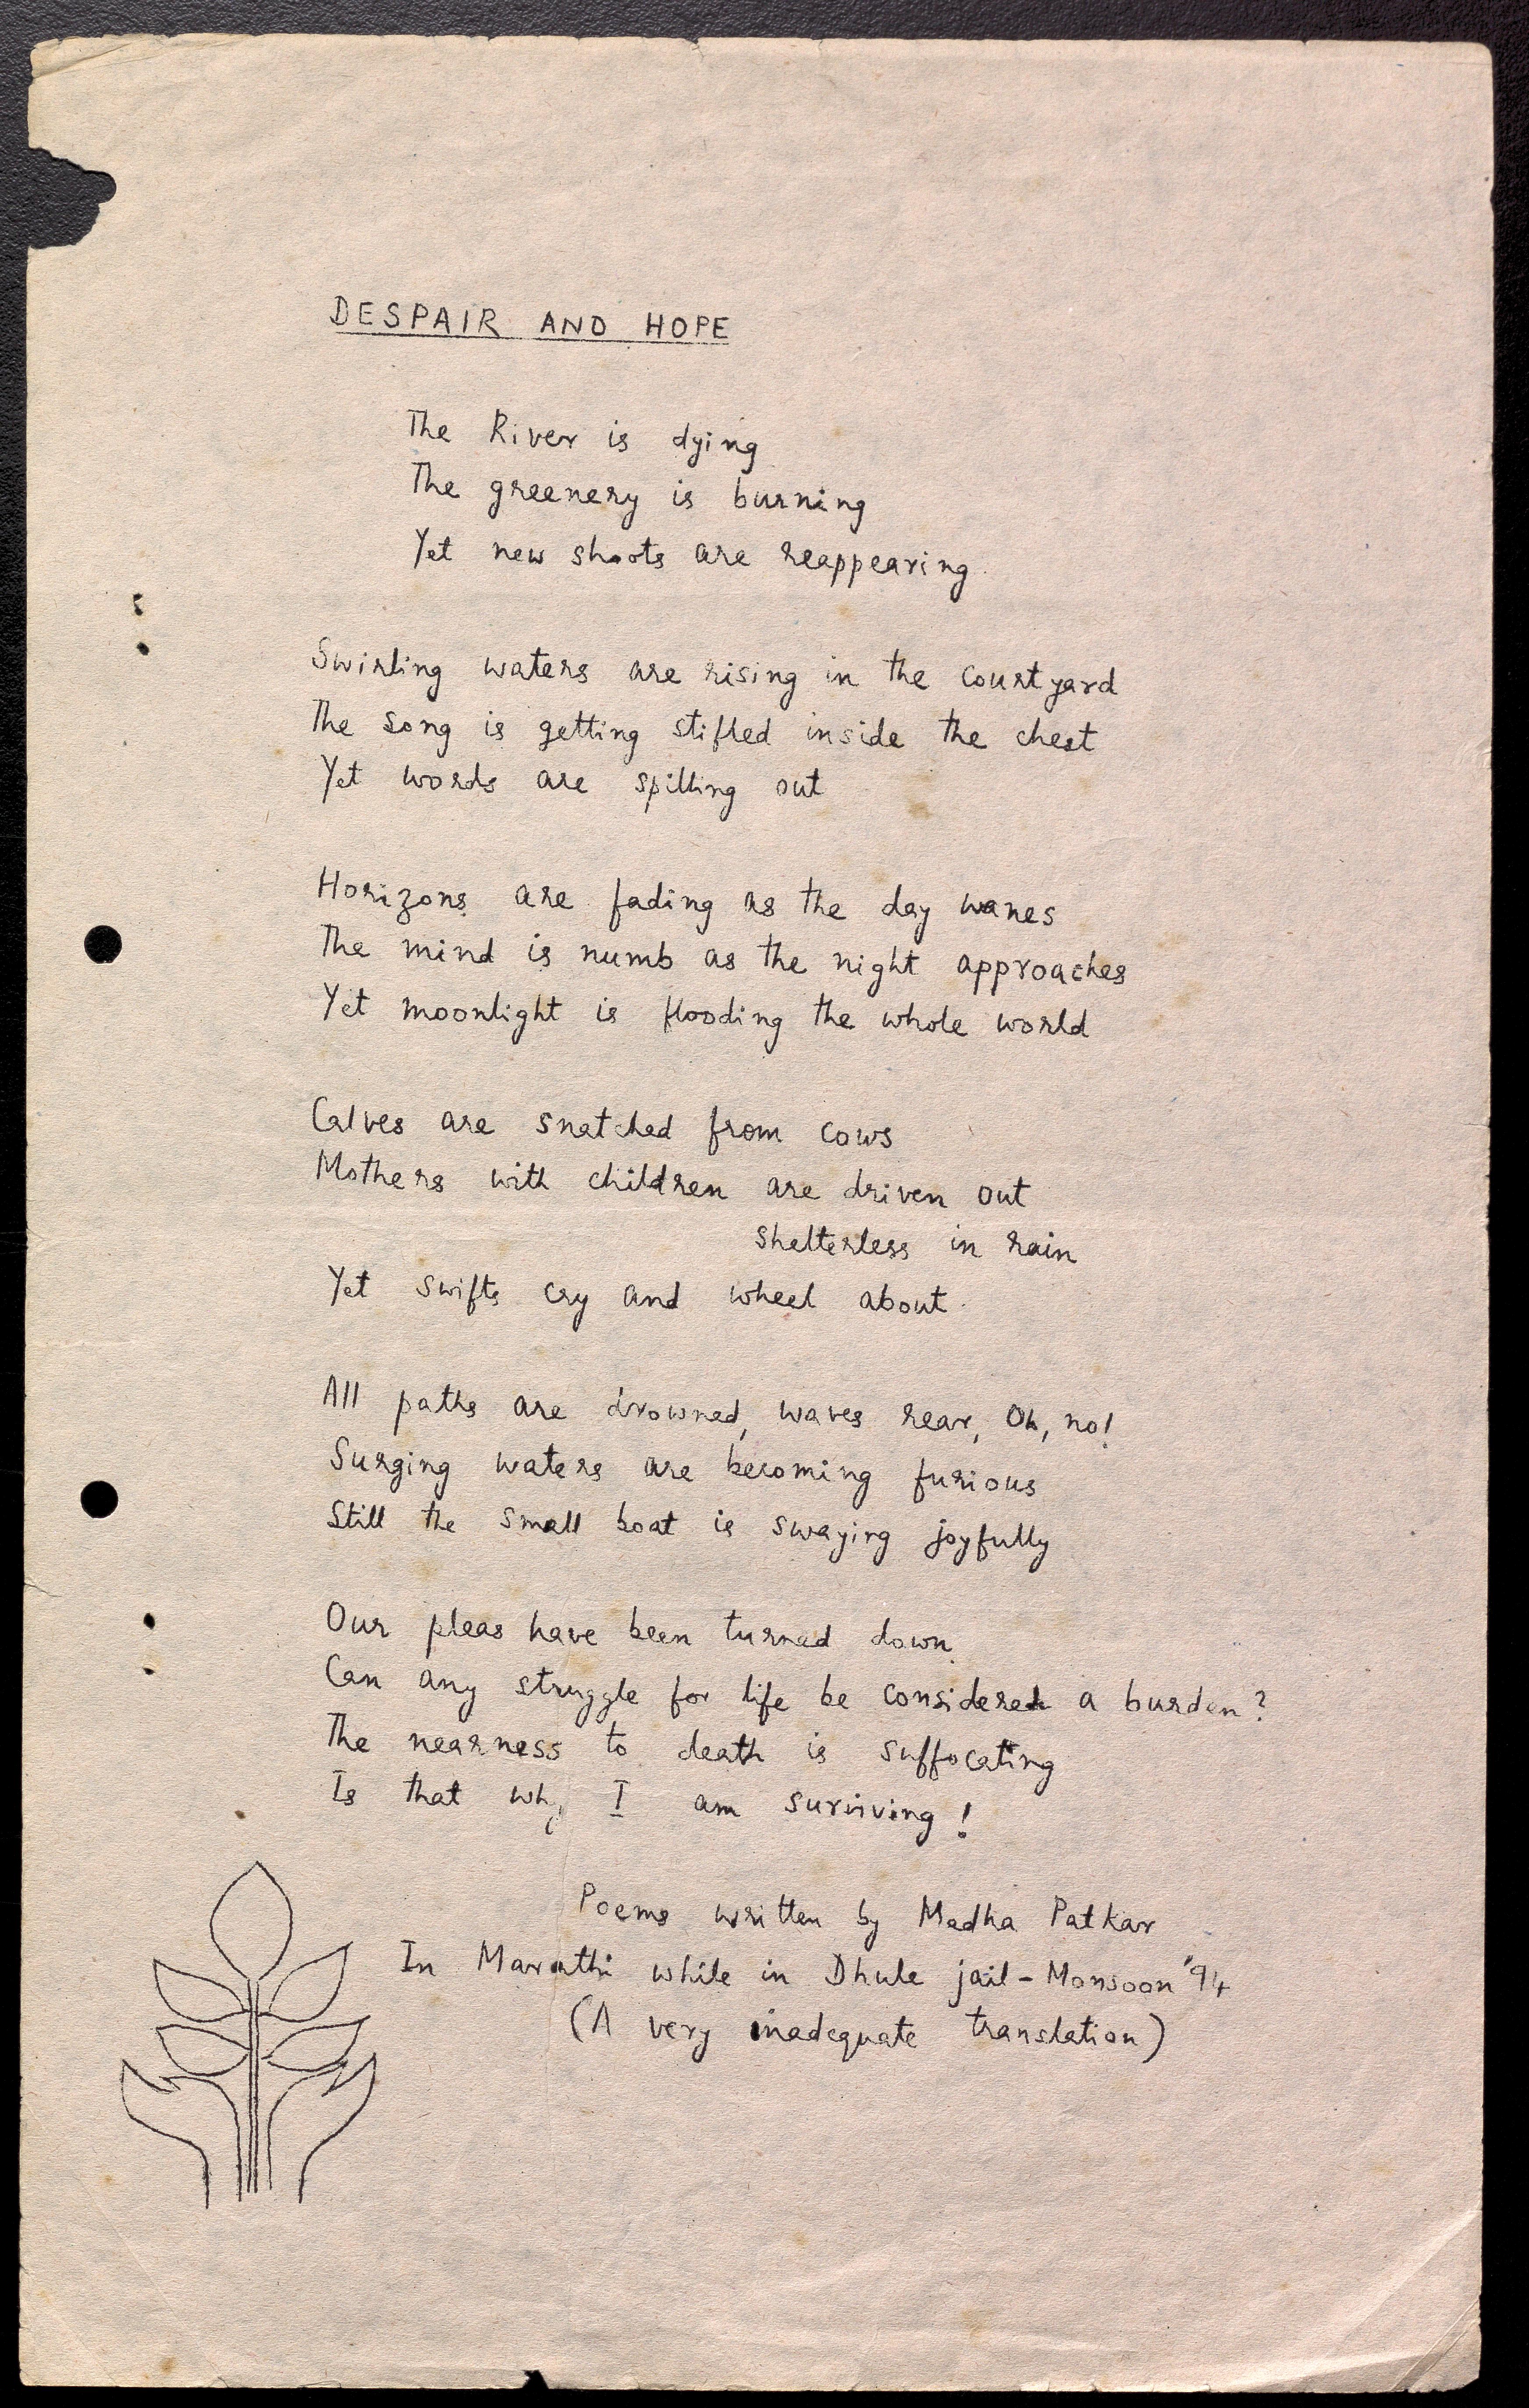 DESPAIR AND HOPE
The River is dying
The greenery is burning
Yet new shoots are reappearing.
Swirling waters are rising in the courtyard
The song is getting stifled inside the chest
Yet words are spilling out
Horizons are fading as the day wanes
The mind is numb as the night approaches
Yet moonlight is flooding the whole world
Calves are snatched from cows
Mothers with children are driven out
shelterless in rain
Yet swifts cry and wheel about.
All paths are drowned, waves rear, Oh, no!
Surging waters are becoming furious
Still the small boat is swaying joyfully
Our pleas have been turned down.
Can any struggle for life be considered a burden?
The nearness to death is suffocating
Is that why I am surviving!
Poems written by Medha Patkar
In Marathi while in Dhule jail - Monsoon '94
(A very inadequate translation)